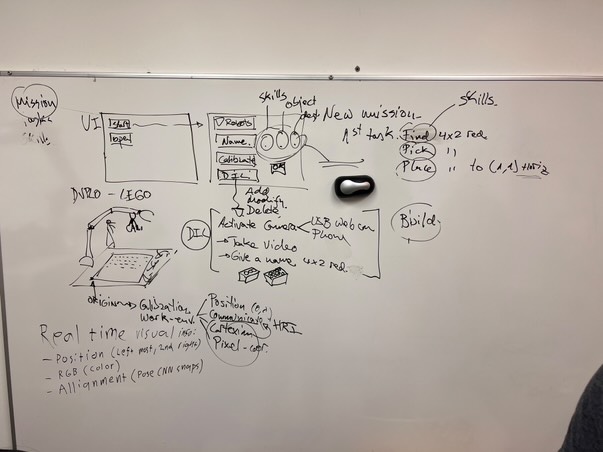 Mission
Tasks
Skills
UI
Start
V Robots
Name.
Calibrate
DIL
skills
object
New mission
skills.
1st task. Find 4x2 red
Pick "
Place " to (1,1)
Build
Add
Modify
Delete
DUPLO - LEGO
DIL
Activate Camera
USB Web cam
Phone
→ Take Video
→ Give a name 4x2 red.
ORIGIN
Calibration
Work-env.
Position
HRI
Cartesian
Pixel-coor.
Real time visual info:
- Position (Left most, 2nd right)
- RGB (color)
- Allignment (Pose CNN snaps)